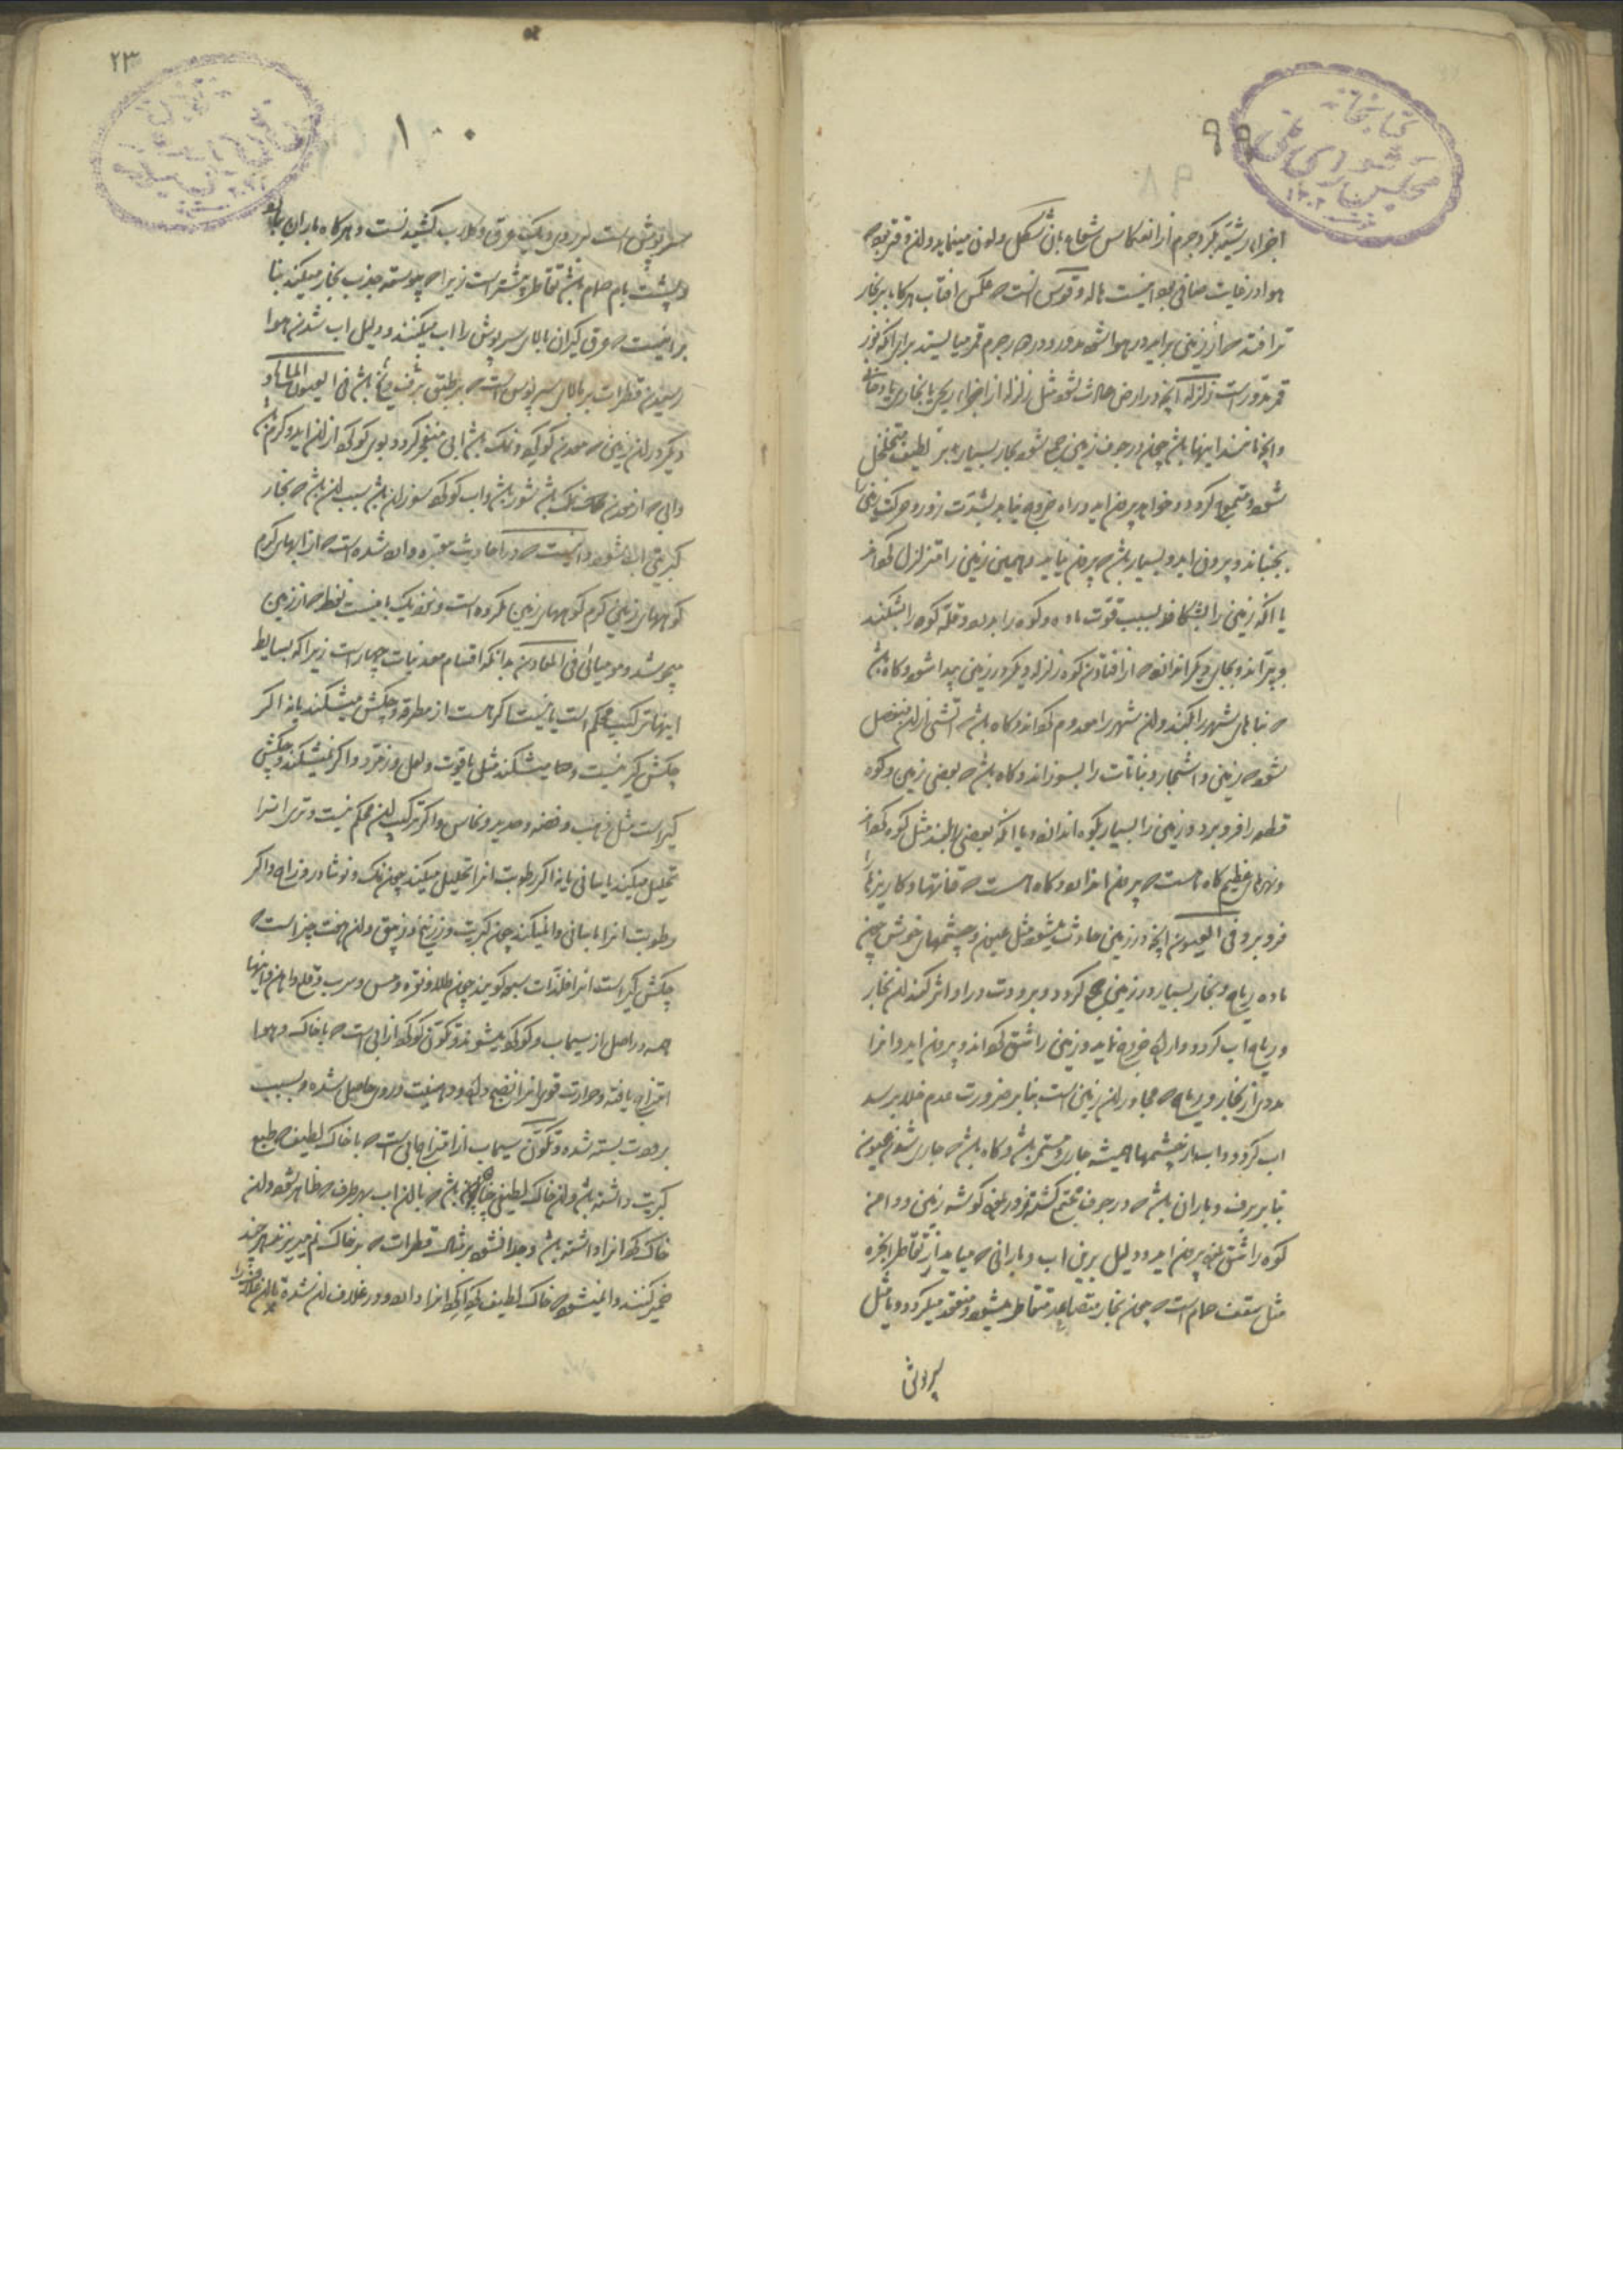 ۹۹
کتابخانه
مجلس شورای ملی
اجزاء رشیه بکر و جرم از انعکاس شعاع بان شکل ولون مینماید ولان وقتی بود که
هوا در غایت صافی بود اینست هاله و قوس انست که عکس افتاب هرگاه بر بخار
تر افتد که از زمین براید در هوا شود مدور و در جرم قمر میایستد برای آنکه نور
قمر مدور است زلزله انچه در ارض حادث شود مثل زلزله از اجزاء ریحی یا بخاری یا دخانی
وانچه مانند اینها باشد چون در جوف زمین جمع شود بخار بسیار بر لطیف متخلخل
شود و متموج گردد و خواهد بیرون اید و راه خروج نیابد بشدت زور و حرکت زمین را
بجنباند و بیرون اید و بسیار باشد که بیرون نیاید و همین زمین را متزلزل گرداند
یا انکه زمین را بشکافد بسبب قوت ماده و کوه را بدرد و قله کوه را بشکند
و بپراند و بجای دیگر اندازد که از افتادن کوه زلزله دیگر در زمین پیدا شود و کاه باشد
که بناهای شهر را بکند ولان شهر را معدوم گرداند و کاه باشد که اتشی ازلان منفصل
شود که زمین و اشجار و نباتات را بسوزاند و کاه باشد که بعضی زمین و کوه
قطعه را فرو برد و زمین را بسیار بکوه اندازد و یا انکه بعضی بلند مثل کوه گرداند
ونهرهای عظیم کاه هست که بیرون اندازد و کاه هست که قناتها و کاریزها را
فرو برد فی العیون انچه در زمین حادث میشود مثل عیون و چشمهای خوش چون
ماده ریاح و بخار بسیار در زمین جمع گردد و برودت در او اثر کند لان بخار
وریاح اب گردد و اراده خروج نماید و زمین را شق گرداند و بیرون اید و انرا
مددی از بخار و ریاح که مجاور لان زمین است بنابر ضرورت عدم خلا برسد
اب گردد و ابدا از چشمها همیشه جاری و مستمر باشد و کاه باشد که جاری شدن عیون
بنابر برف و باران باشد که در جوف مجتمع گشته زور نموده گوشه زمین و دامنه
کوه را شق نموده بیرون اید و دلیل برین اب و بارانی که میاید از تقاطر ابخره
مثل سقف حمام است که چون بخار متصاعد متقاطر میشود و منعقد میگردد و یا مثل
سرپوش
۲۳
۱۰۰
سرپوش است لان دیگ عرق و گلاب کشیدنست و هرگاه باران بیاید
و پشت بام حمام باشد تقاطر بیشتر است زیرا که پیوسته جذب بخار میکند بنا
بر اینست که عرق گیران بالای سرپوش را اب میکنند و دلیل اب شدن هوا
رسیدن قطرات بر بالای سرپوش است که بر طبق برف و یخ باشد فی العیون
دیگر در لان زمین که معدن گوگرد و نمک باشد ابی منفجر گردد بوی گوگرد ازلان اید و گرم باشد
وابی که از معدن نمک باشد شور باشد و اب گوگرد سوزان باشد بسبب لان باشد که بخار
کبریتی اب شود و اینست که در احادیث معتبره وارد شده است که از ابهای گرم
کوههای زمین گرم کوههای زمین مکروه است و نزدیک باینست نفط که از زمین
میجوشد و مومیائی فی المعادن بدانکه اقسام معدنیات چهار است زیرا که بسایط
اینها ترکیب محکم است یا نیست اگر هست از مطرقه و چکش میشکند یا نه اگر
چکش گیر نیست و ها میشکند مثل یاقوت و لعل و زمرد و اگر نمیشکند و چکش
گیر است مثل ذهب و فضه و حدید و نحاس و اگر ترکیب لان محکم نیست و تری انرا
تحلیل میکند باسانی یا نه اگر رطوبت انرا تحلیل میکند چون نمک و نوشادر و زاج و اگر
رطوبت انرا باسانی وا نمیکند چون کبریت و زرنیخ و زیبق و لان هفت چیز است که
چکش گیر است انرا فلزات سبعه گویند چون طلا و نقره و مس و سرب و قلع و اهن و اینها
همه در اصل از سیماب و گوگرد میشوند و تکون گوگرد از ابی است که با خاک و هوا
امتزاج یافته و حرارت قوی انرا نضج داده و دهنیت در وی حاصل شده و بسبب
برودت بسته شده و تکون سیماب از امتزاج ابی است که با خاک لطیف که طبع
کبریت داشته باشد و لان خاک لطیفی باشد که با لان اب بهر طرف که ظاهر شود لان
خاک گرد انرا داشته باشد و جدا نشود بر مثال قطرات که بر خاک نم میریزند هر چند
خمیر کنند وا نمیشود که خاک لطیف گرداگرد انرا دارد و در غلاف لان شده